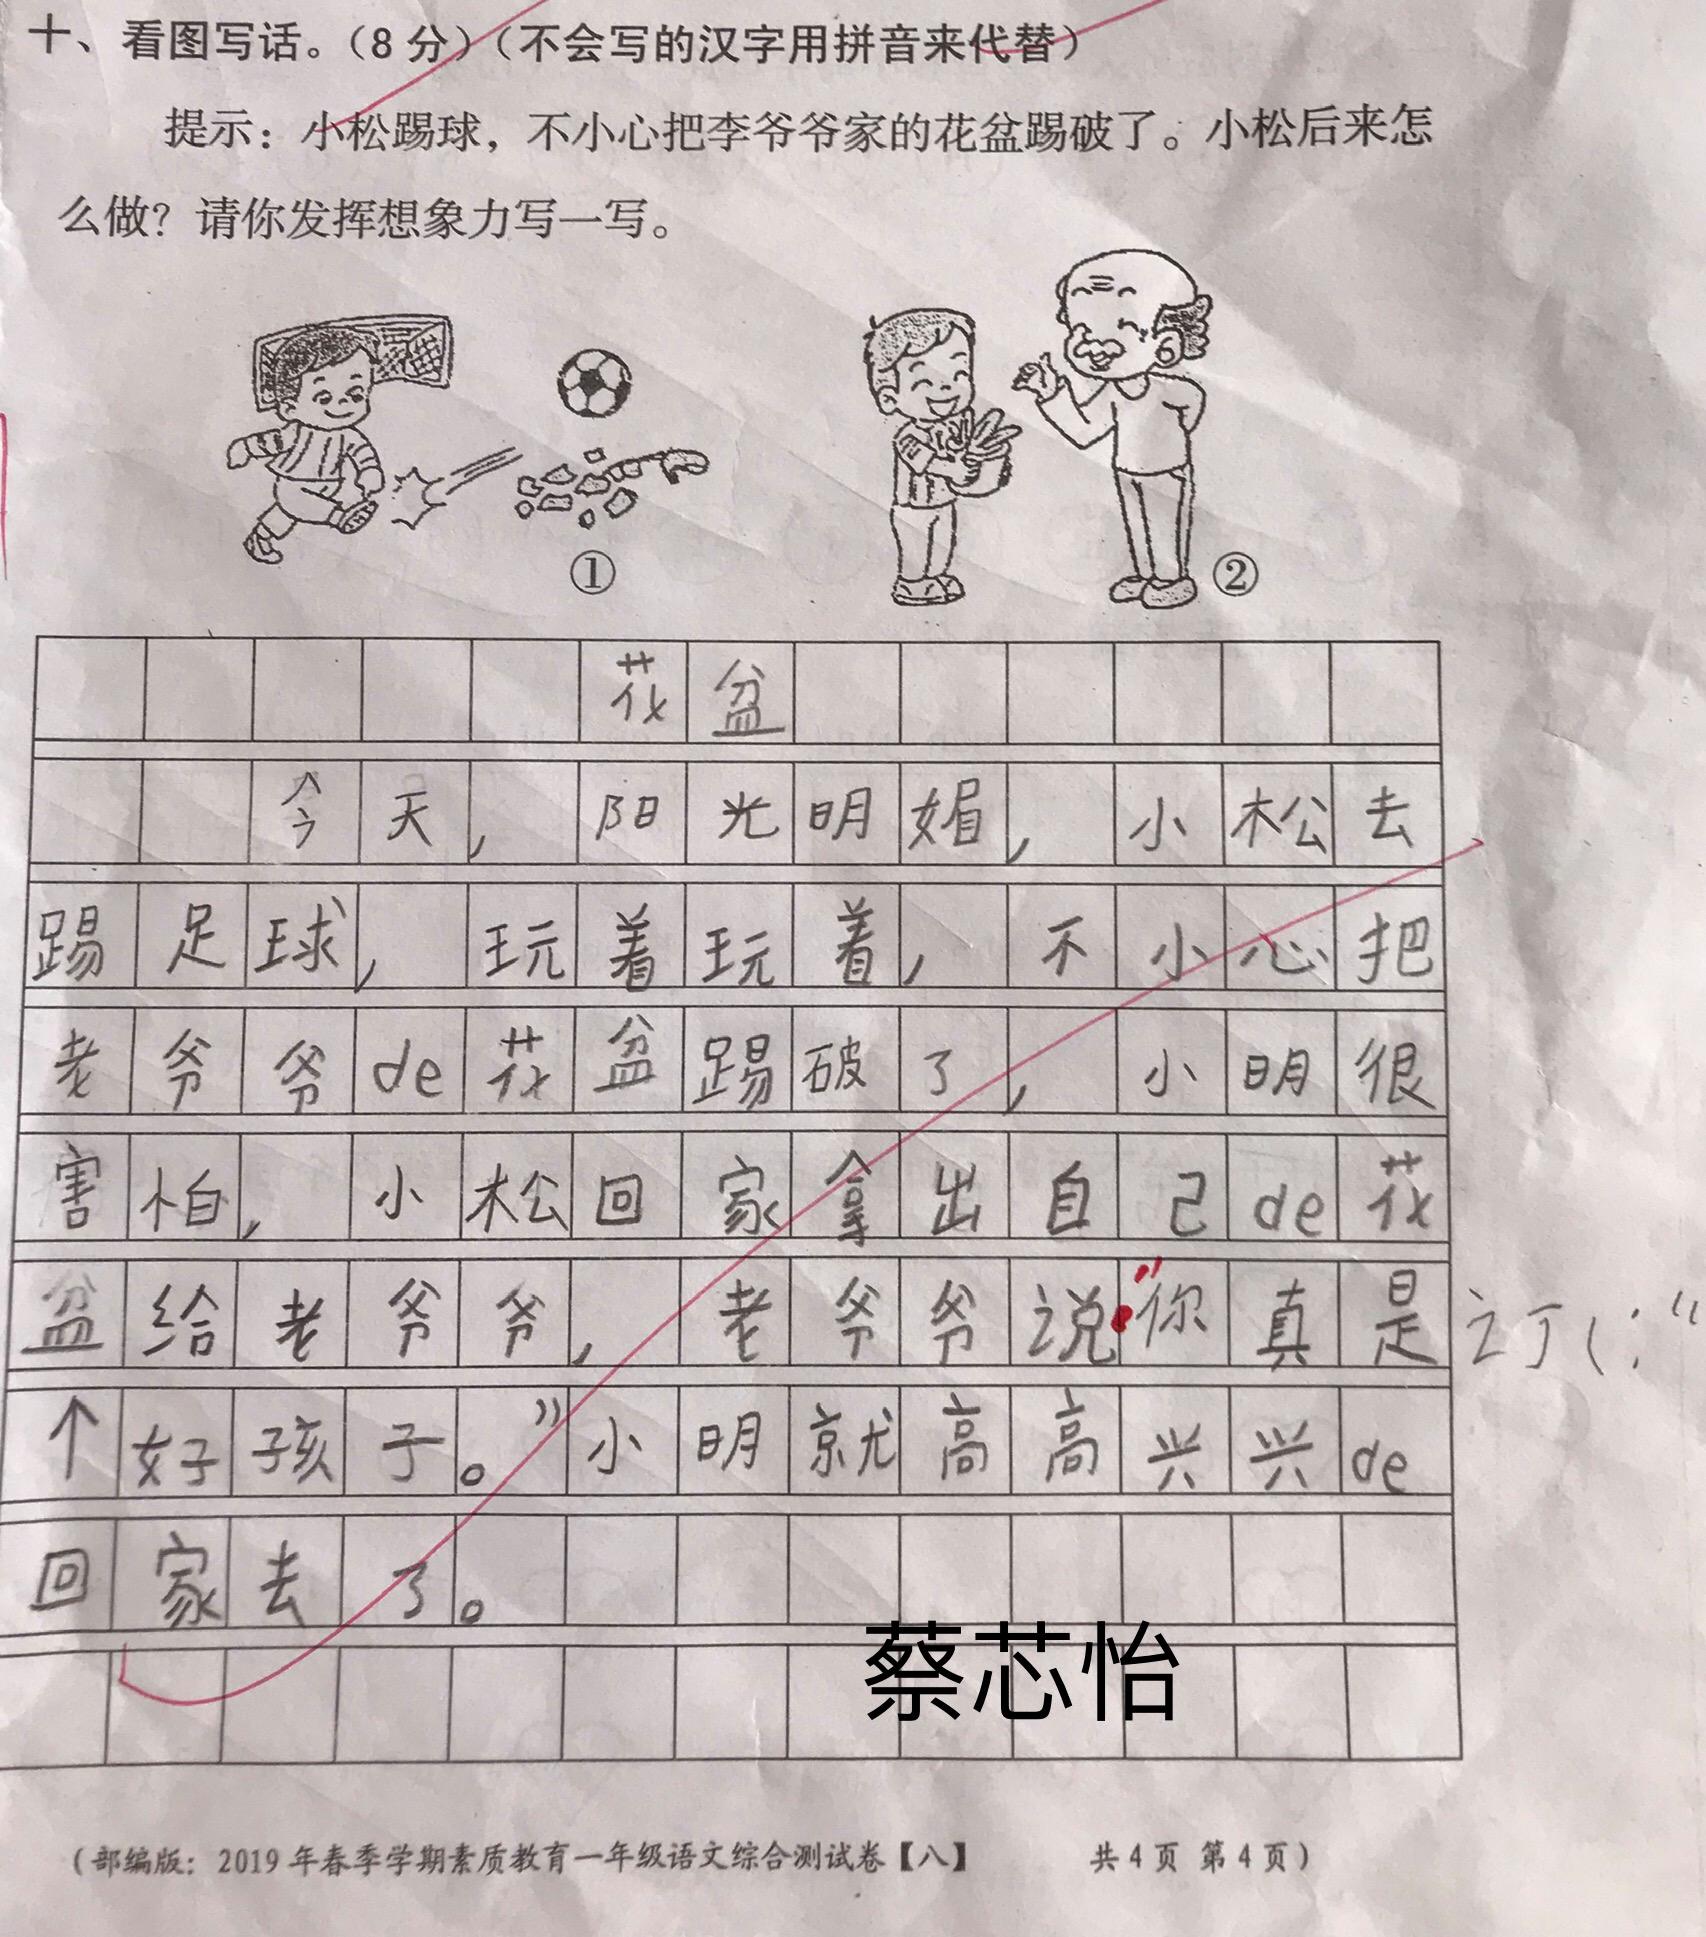 十、看图写话。（8分）（不会写的汉字用拼音来代替）
提示：小松踢球，不小心把李爷爷家的花盆踢破了。小松后来怎
么做？请你发挥想象力写一写。
①
②
花盆
今天，阳光明媚，小松去
踢足球，玩着玩着，不小心把
老爷爷de花盆踢破了，小明很
害怕，小松回家拿出自己de花
盆给老爷爷，老爷爷说：“你真是
个好孩子。”小明就高高兴兴de
回家去了。
蔡芯怡
（部编版：2019年春季学期素质教育一年级语文综合测试卷【八】 共4页 第4页）